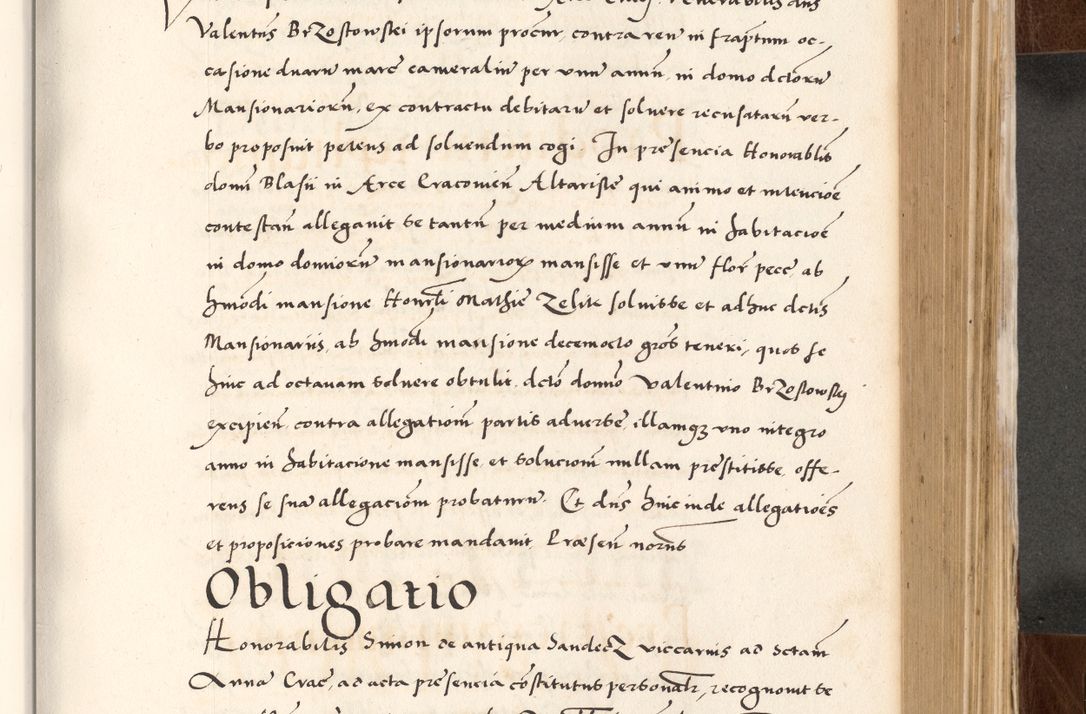 Valentus BrZostowskei ipsorum procur, contra reu in fraptum oc-
casione duaru marc cameraliu per unu annu, in domo dctoru
Mansionarioru, ex contractu debitaru et solvere recusataru ver-
bo proposuit petens ad solvendum cogi. In presencia Honorablis
domi Blasii in Arce Cracovien Altariste qui animo et intencioe
contestan allegavit se tantu per medium annu in habitacioe
in domo domioru mansionariorum mansisse et unu flor pecc, ab
hmodi mansione Honrli Mathie Zelik solvisse et adhuc dctis
Mansionariis, ab hmodi mansione decemocto gros teneri, quos se
hinc ad octavam solvere obtulit. dcto domno Valentino BrZostowskj
excipien contra allegationi partis adverse, illamq3 uno integro
anno in habitacione mansisse, et solucioni nullam prestitisse, offe-
rens se sua allegaciom probaturu. Et dns hinc inde allegatioes
et proposiciones probare mandavit, Præsen norns
Obligatio
Honorabilis Simon de antiqua SandecZ viccarius ad Sctam
Anna Crac, ad acta presencia costitutus personalr, recognovit se